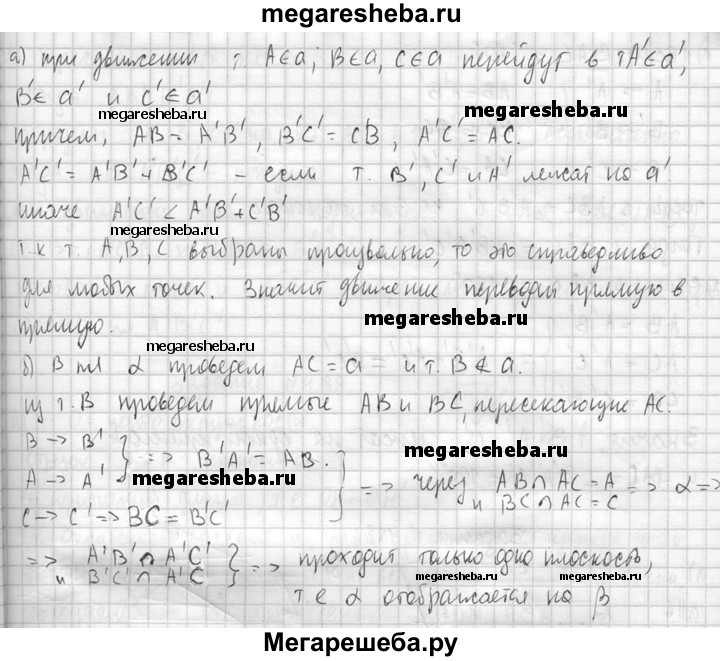 megaresheba.ru
а) при движении т. A∈a, B∈a, C∈a перейдут в т A'∈a',
B'∈ a' и C'∈a'
megaresheba.ru
причем, AB = A'B', B'C' = CB, A'C' = AC.
megaresheba.ru
A'C' = A'B' + B'C' – если т. B', C' и A' лежат на a'
иначе A'C' < A'B' + C'B'
megaresheba.ru
т.к т. A, B, C выбраны произвольно, то это справедливо
для любых точек. Значит движение переводит прямую в
прямую.
megaresheba.ru
megaresheba.ru
б) В пл α проведем AC = a = и т. B ∉ a.
из т. B проведем прямые AB и BC, пересекающие AC.
B → B'
A → A' } => B'A' = AB.
megaresheba.ru
megaresheba.ru
C → C' => BC = B'C'
} => через AB ∩ AC = A и BC ∩ AC = C => α =>
=> A'B' ∩ A'C' и B'C' ∩ A'C } => проходит только одна плоскость,
megaresheba.ru megaresheba.ru
т.е α отображается на β
Мегарешеба.ру